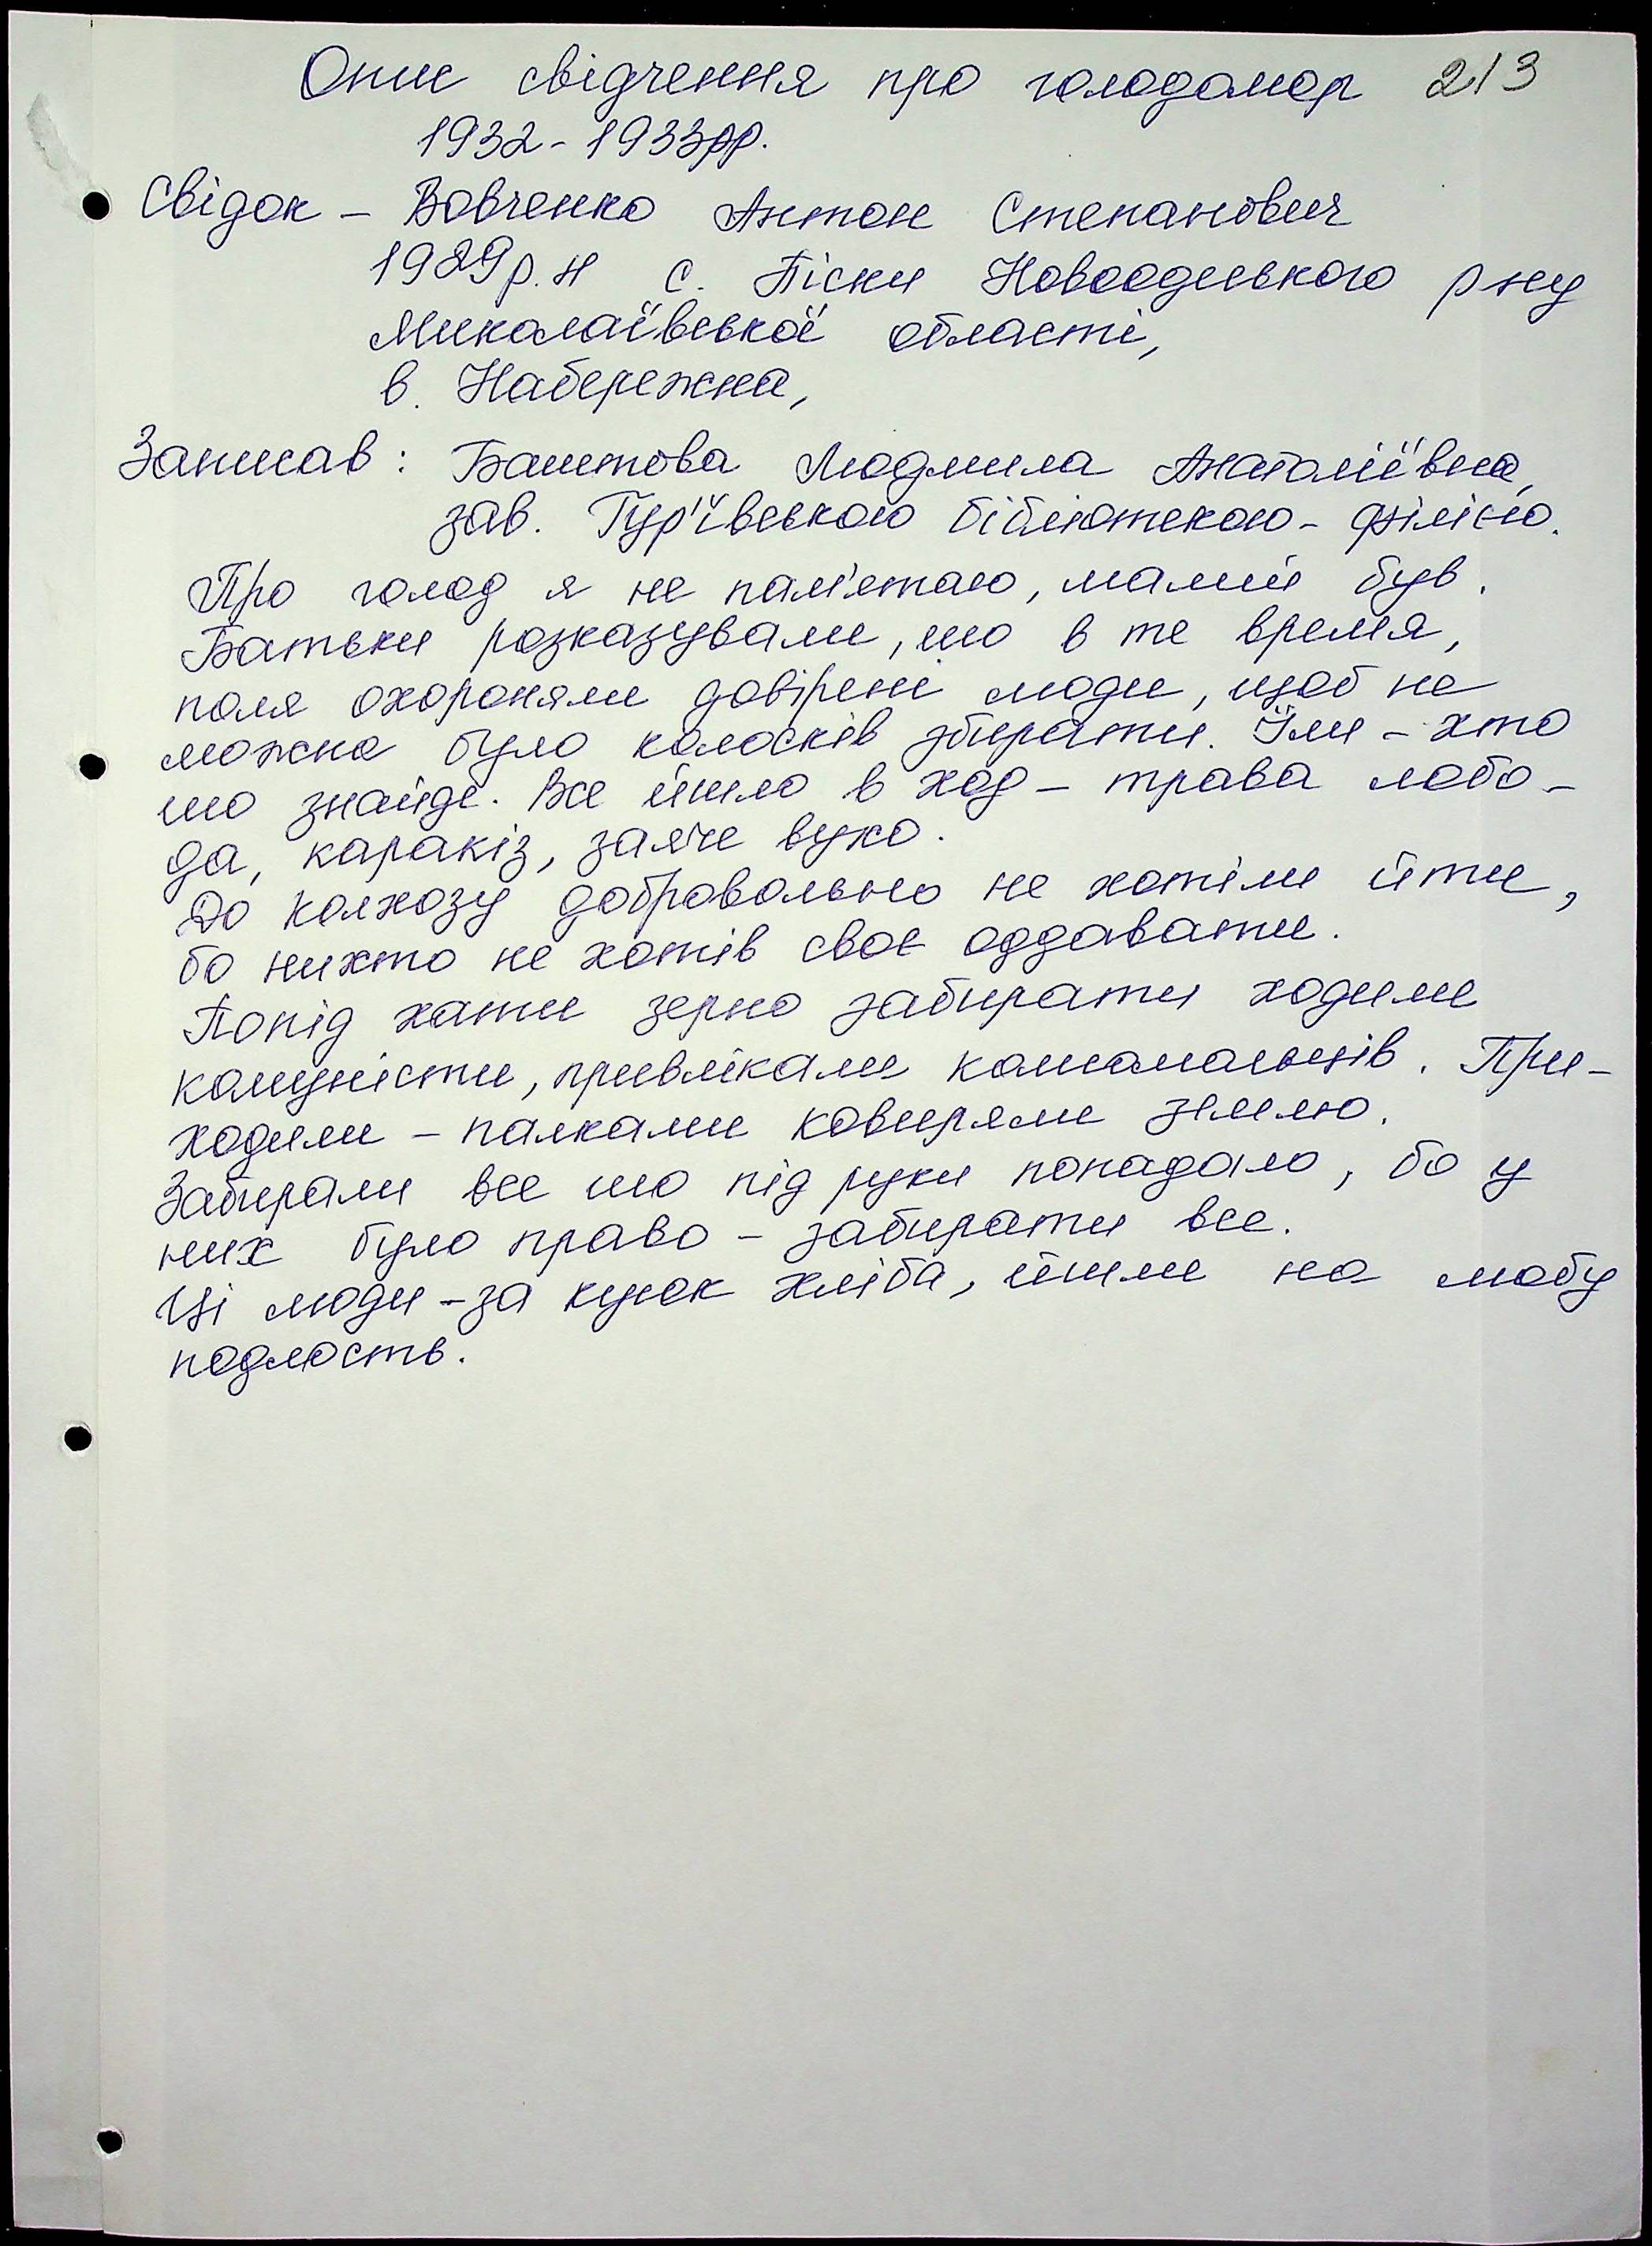 Опис свідчення про голодомор 213
1932-1933рр.
Свідок - Вовченко Антон Степанович
1929р.н с. Піски Новоодеського р ну
Миколаївської області,
в. Набережна,
Записав: Баштова Людмила Анатоліївна,
зав. Гур'ївською бібліотекою - філією.
Про голод я не пам'ятаю, малий був.
Батьки розказували, шо в те время,
поля охороняли довірені люди, щоб не
можна було колосків збирати. Їли - хто
шо знайде. Все йшло в ход - трава лобо-
да, каракіз, заяче вухо.
До колхозу добровольно не хотіли йти,
бо нихто не хотів своє оддавати.
Попід хати зерно забирати ходили
комуністи, привлікали комсомольців. При-
ходили - палками ковиряли землю.
Забирали все шо під руки попадало, бо у
них було право - забирати все.
Ці люди - за кусок хліба, йшли на любу
подлость.